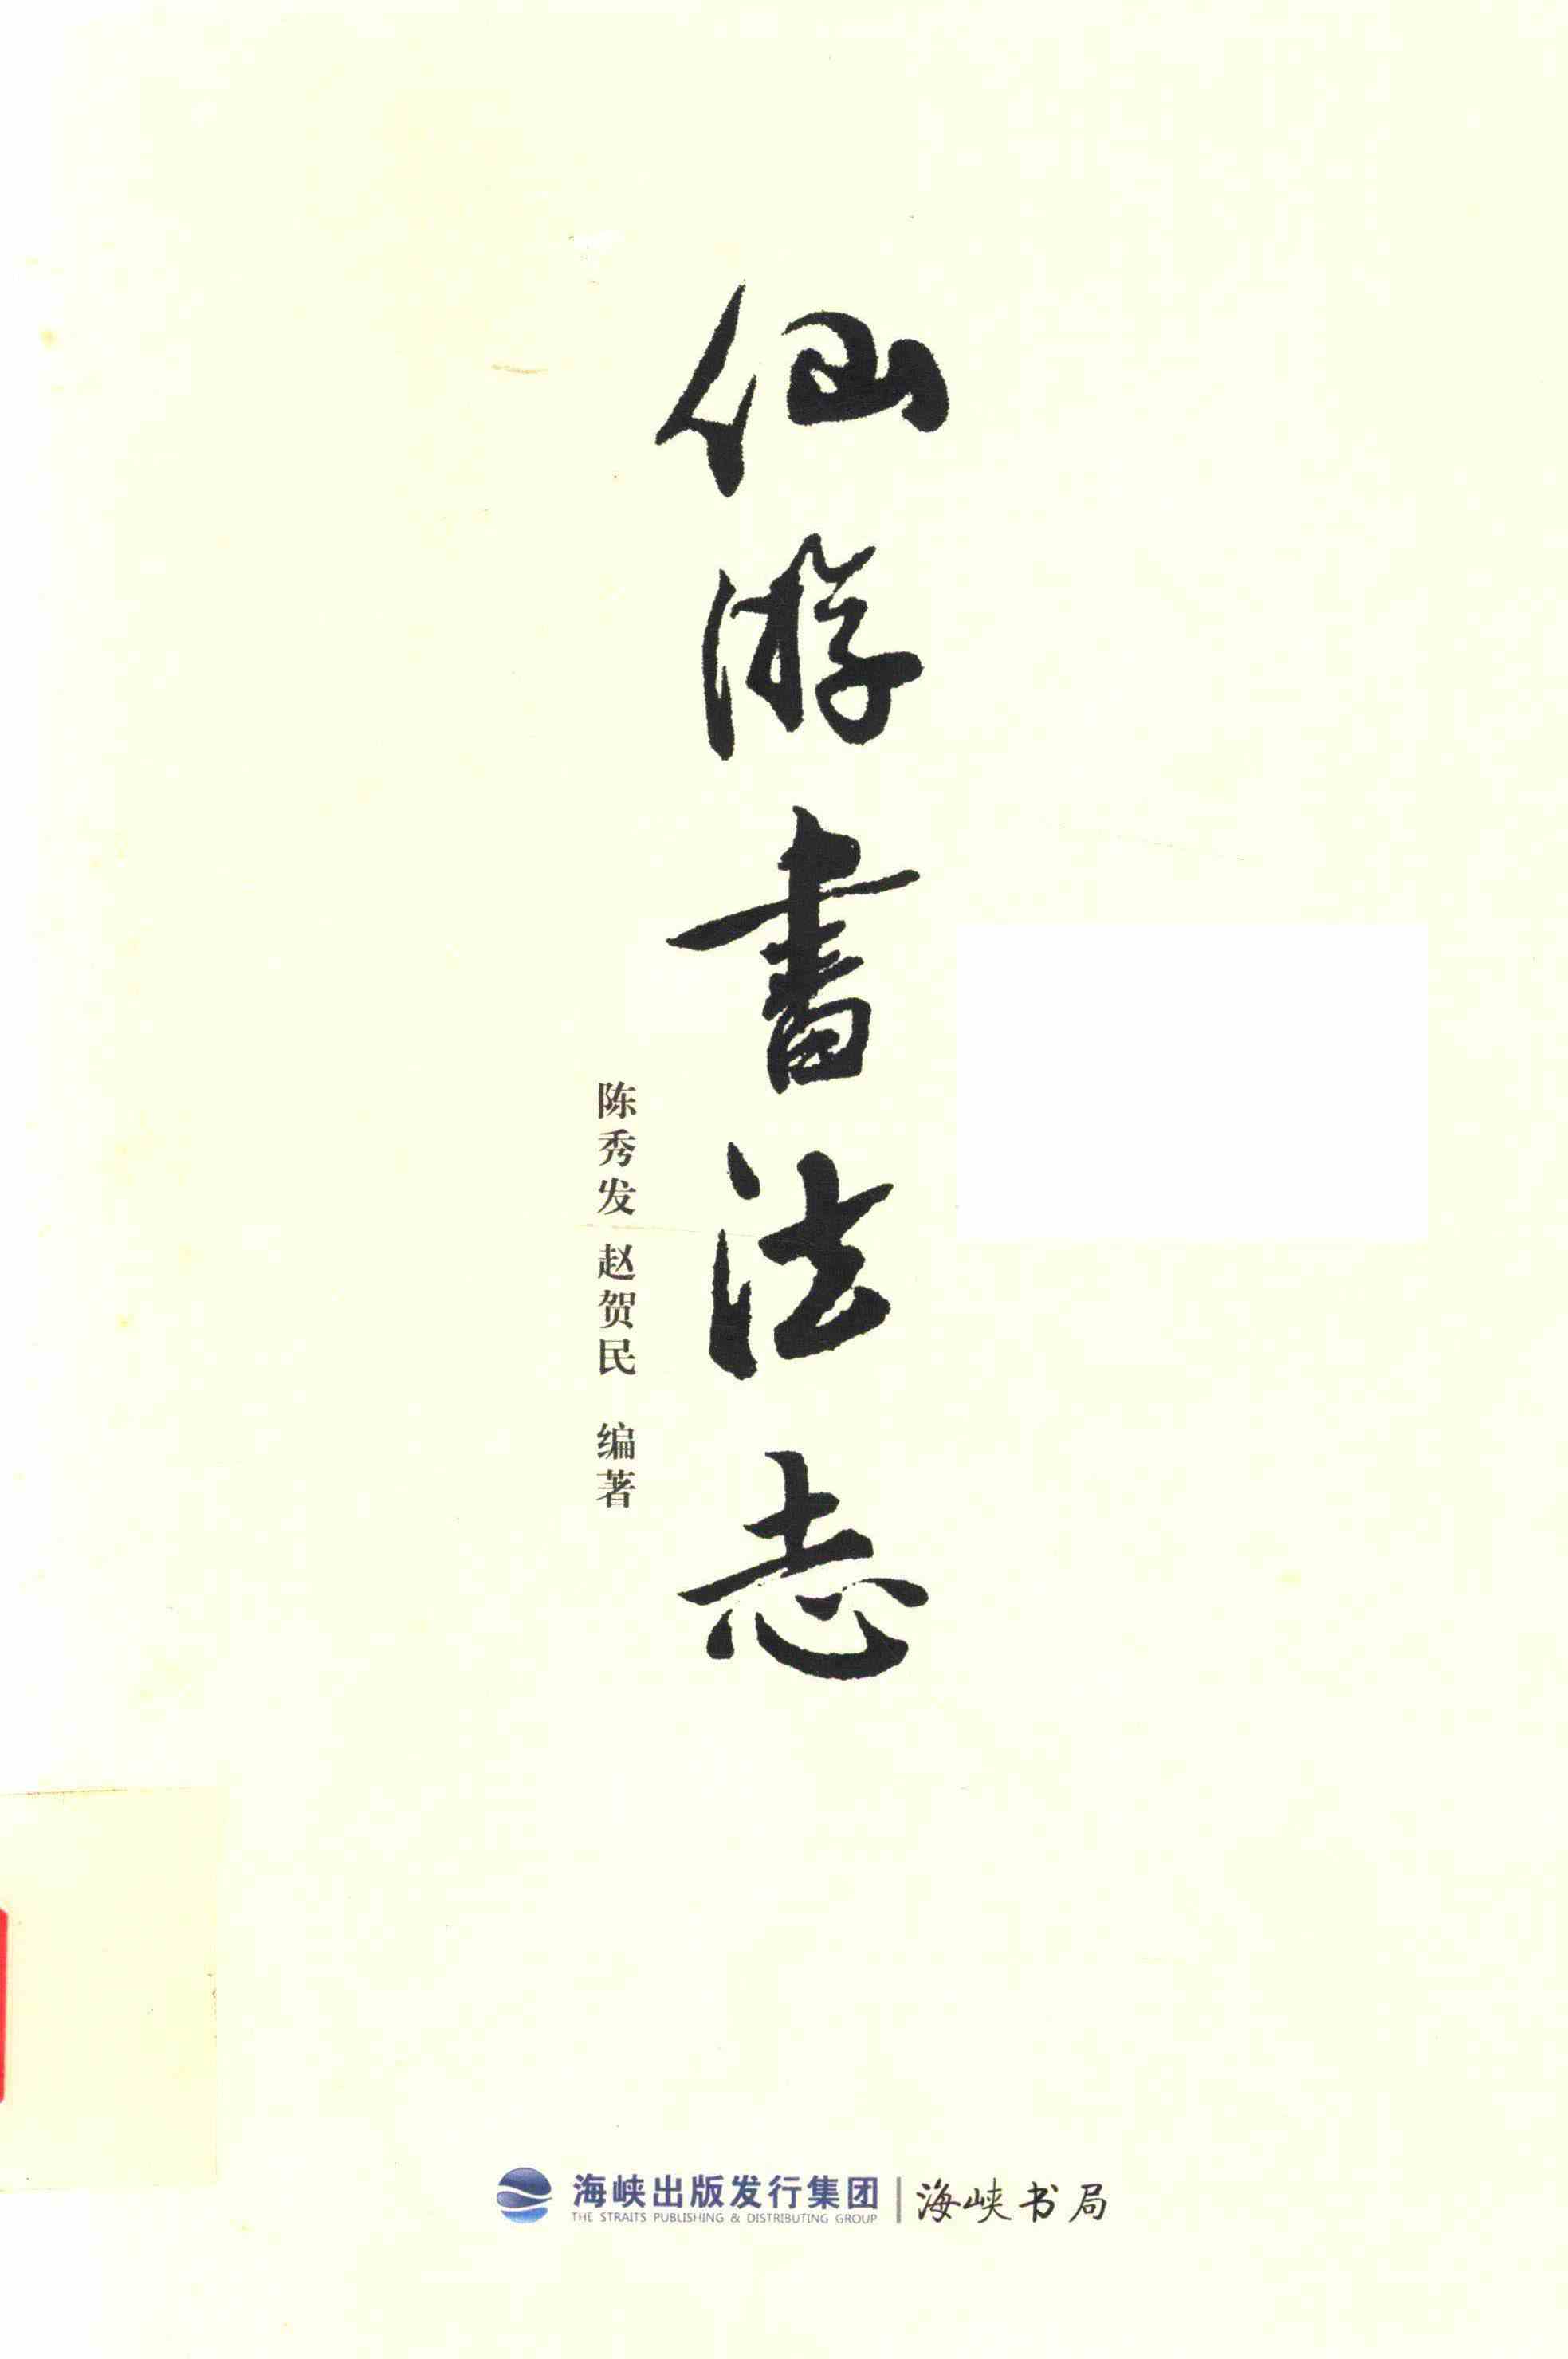 仙游書法志
陈秀发 赵贺民 编著
海峡出版发行集团
THE STRAITS PUBLISHING & DISTRIBUTING GROUP
海峡书局